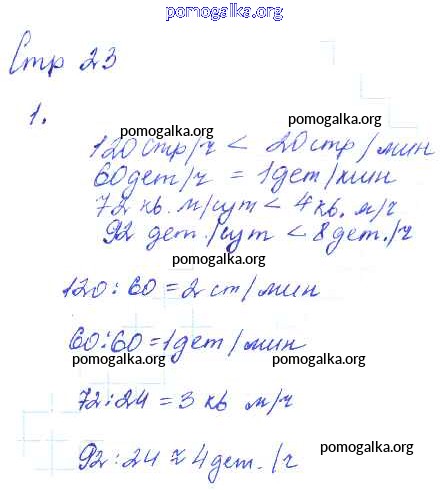 pomogalka.org
Стр 23
1.
pomogalka.org
pomogalka.org
120 стр/ч < 20 стр/мин
60 дет/ч = 1 дет/мин
72 кв. м/сут < 4 кв. м/ч
92 дет./сут < 8 дет./ч
pomogalka.org
120 : 60 = 2 ст/мин
60 : 60 = 1 дет/мин
pomogalka.org pomogalka.org
72 : 24 = 3 кв м/ч
pomogalka.org
92 : 24 ≈ 4 дет. /ч